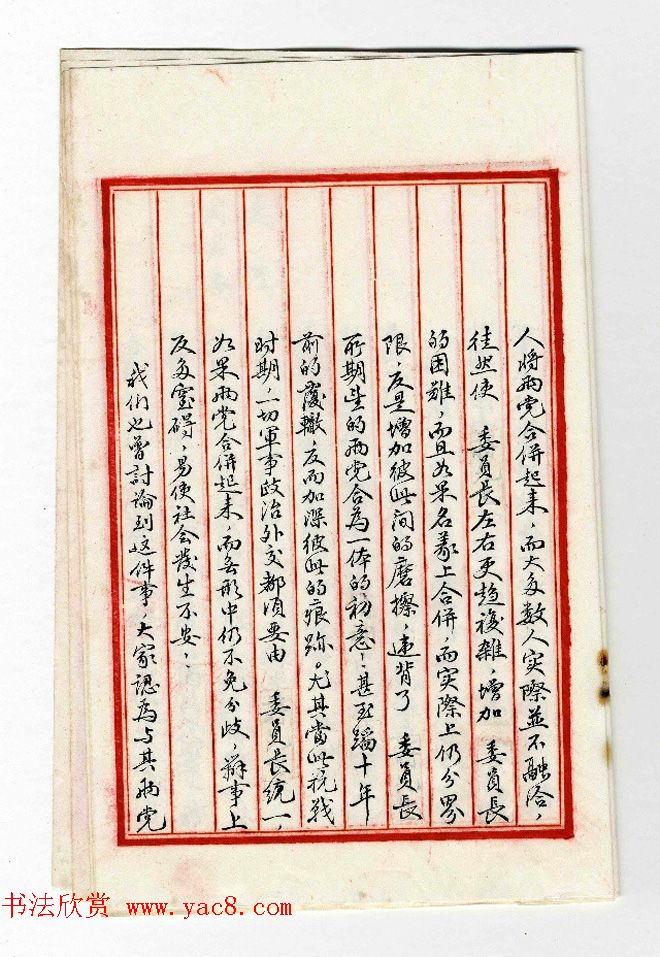 人将两党合併起来，而大多数人实際並不融洽，
徒然使　委員長左右更趋複雜，增加　委員長
的困難，而且如果名義上合併，而实際上仍分界
限，反是增加彼此间的磨擦，违背了　委員長
所期望的两党合為一体的初意；甚至蹈十年
前的覆轍，反而加深彼此的痕跡。尤其當此抗战
时期，一切軍事政治外交都須要由　委員長統一，
如果两党合併起来，而無形中仍不免分歧，辦事上
反多窒碍，易使社会发生不安；
我们也曾討論到这件事，大家認為与其两党
书法欣赏 www.yac8.com